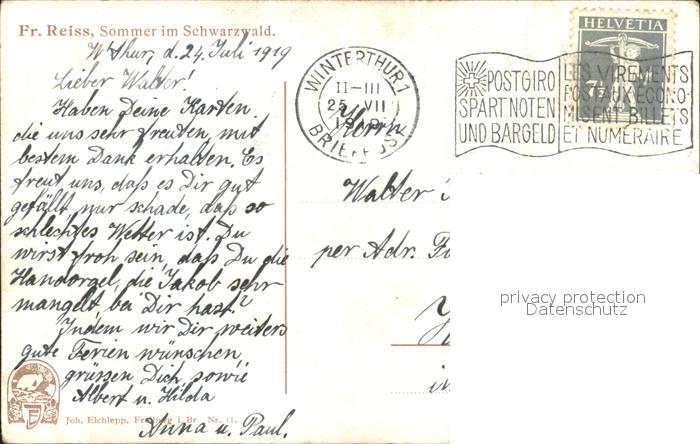 Fr. Reiss, Sommer im Schwarzwald.
W'thur, d. 24. Juli 1919
Lieber Walter!
Haben Deine Karten,
die uns sehr freuten, mit
bestem Dank erhalten. Es
freut uns, dass es Dir gut
gefällt nur schade, dass so
schlechtes Wetter ist. Du
wirst froh sein, dass Du die
Handorgel, die Jakob sehr
mangelt, bei Dir hast?
Indem wir Dir weiters
gute Ferien wünschen,
grüssen Dich sowie
Albert u. Hilda
Anna u. Paul.
Joh. Elchlepp, Freiburg i. Br. Nr. 11.
WINTERTHUR 1
II-III
25 VII
BRIEF
HELVETIA
POSTGIRO
SPART NOTEN
UND BARGELD
LES VIREMENTS
POSTAUX ÉCONO-
MISENT BILLETS
ET NUMÉRAIRE
Herrn
Walter
per Adr.
privacy protection
Datenschutz